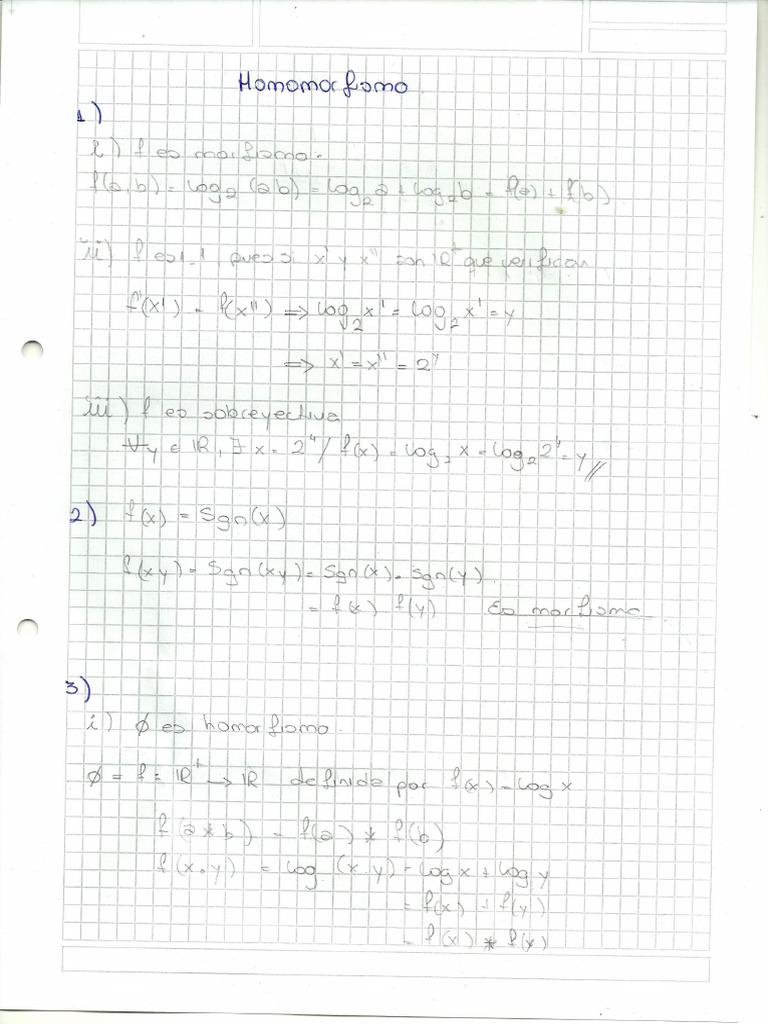 Homomorfismo
1)
i) f es morfismo.
f(a.b) = log₂(ab) = log₂a + log₂b = f(a) + f(b)
ii) f es 1-1, pues si x' y x'' son ℝ⁺ que verifican
f(x') = f(x'') ⟹ log₂x' = log₂x' = y
⟹ x' = x'' = 2^y
iii) f es sobreyectiva
∀y ∈ ℝ, ∃ x = 2^y / f(x) = log₂x = log₂2^y = y //
2) f(x) = Sgn(x)
f(xy) = Sgn(xy) = Sgn(x) . Sgn(y).
= f(x) f(y) Es morfismo
3)
i) ϕ es homorfismo.
ϕ = f = ℝ⁺ → ℝ definida por f(x) = log x
f(a * b) = f(a) * f(b)
f(x.y) = log (x.y) = log x + log y
= f(x) + f(y)
= f(x) * f(x)